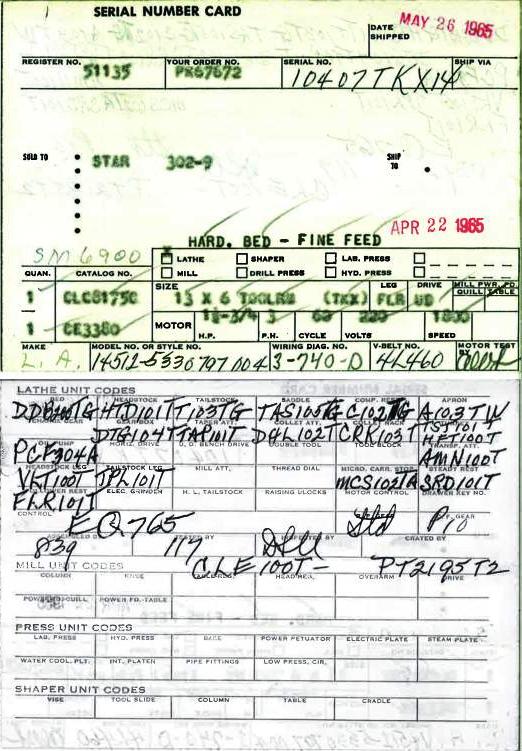 SERIAL NUMBER CARD
DATE SHIPPED MAY 26 1965
REGISTER NO. YOUR ORDER NO. SERIAL NO. SHIP VIA
51135 PR67672 10407TKX14
SOLD TO STAR 302-9 SHIP TO
APR 22 1965
HARD. BED - FINE FEED
SM6900 LATHE SHAPER LAB. PRESS
MILL DRILL PRESS HYD. PRESS
QUAN. CATALOG NO. SIZE LEG DRIVE MILL PWR. FD. QUILL TABLE
1 CLC8175C 13 X 6 TOOLRM (TKX) FLR UD
1 CE3380 MOTOR 1½-3/4 3 60 220 1800
H.P. P.H. CYCLE VOLTS SPEED
MAKE MODEL NO. OR STYLE NO. WIRING DIAG. NO. V-BELT NO. MOTOR TEST BY
L.A. 14512-5330797 004 3-740-D 4L460
LATHE UNIT CODES
BED HEADSTOCK TAILSTOCK SADDLE COMP. REST APRON
HTD101T T103TG TAS105TG C102TG A103TW
GEAR BOX TAPER ATT. COLLET ATT.
DTG104T TAP101T D4L102T CRK103T HFT100T
OIL PUMP DOUBLE TOOL TOOL BLOCK
PCF304A AMN100T
HEADSTOCK LEG TAILSTOCK LEG MILL ATT. THREAD DIAL MICRO. CARR. STOP STEADY REST
VKT100T JPL101T MCS102TA SRD101T
ELEC. GRINDER H. L. TAILSTOCK RAISING BLOCKS MOTOR CONTROL DRAWER KEY NO.
FLR101T
CONTROL GEAR
EQ765 Std P10
TESTED BY INSPECTED BY CRATED BY
839 117
MILL UNIT CODES CLE100T- PT2195T2
COLUMN KNEE TABLE HEAD OVERARM DRIVE
POWER FD.-TABLE
PRESS UNIT CODES
LAB. PRESS HYD. PRESS BASE POWER PETUATOR ELECTRIC PLATE STEAM PLATE
WATER COOL. PLT. INT. PLATEN PIPE FITTINGS LOW PRESS. CIR.
SHAPER UNIT CODES
VISE TOOL SLIDE COLUMN TABLE CRADLE